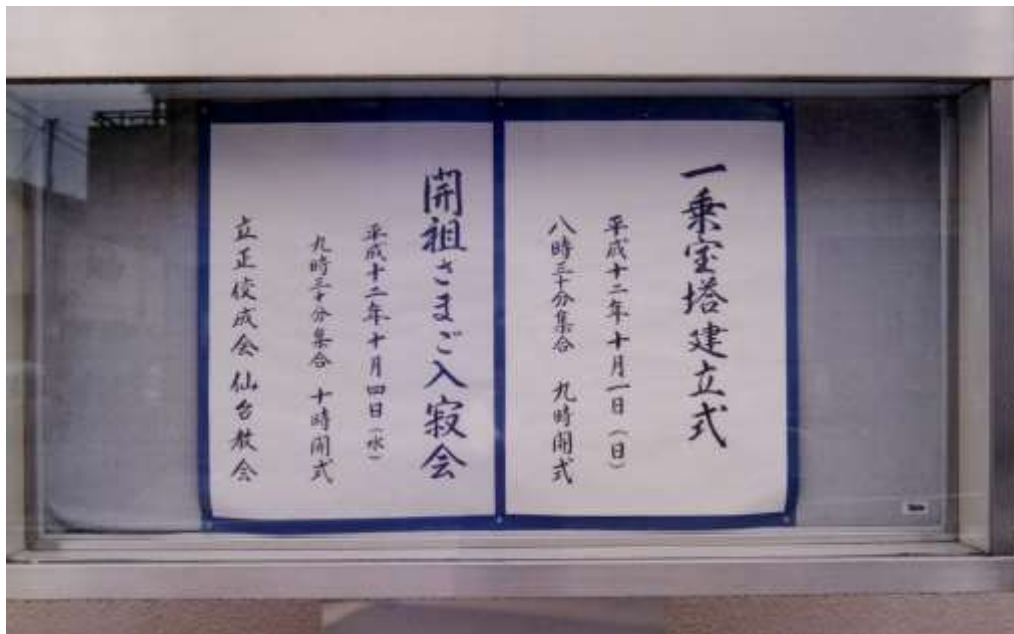 一乗宝塔建立式
平成十二年十月一日（日）
八時三十分集合　九時開式
開祖さまご入寂会
平成十二年十月四日（水）
九時三十分集合　十時開式
立正佼成会仙台教会